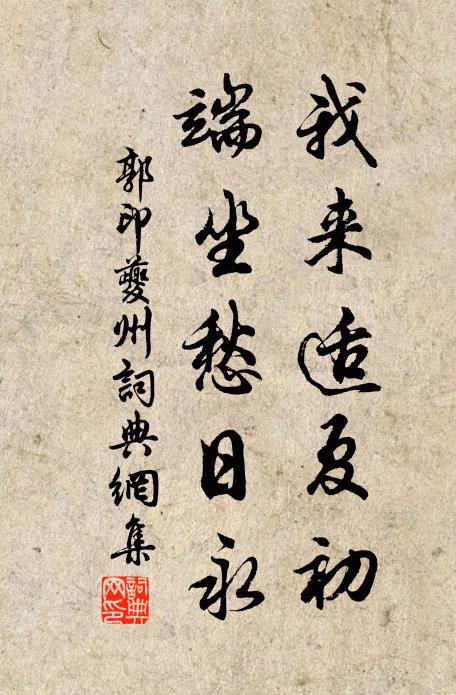 我来适夏初
端坐愁日永
郭印夔州詞典網集
詞典網印